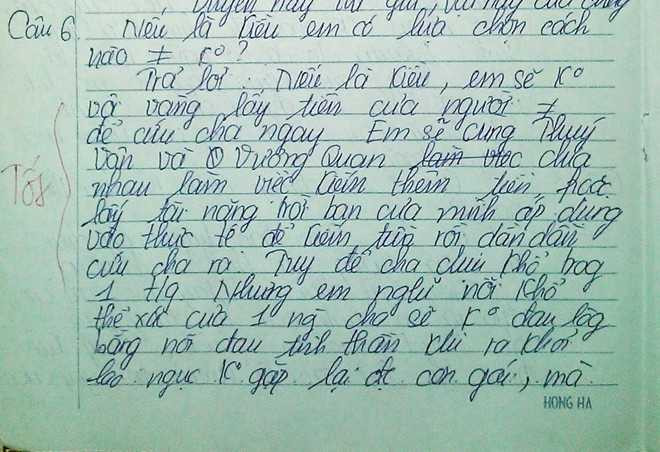 truyện này tác giả
Câu 6. Nếu là Kiều em có lựa chọn cách
nào ≠ K°?
Trả lời: Nếu là Kiều, em sẽ K°
vội vàng lấy tiền của người ≠
để cứu cha ngay. Em sẽ cùng Thuý
Vân và Vương Quan làm việc chia
Tốt
nhau làm việc kiếm thêm tiền, hoặc
lấy tài năng trời ban của mình áp dụng
vào thực tế để kiếm tiền rồi dần dần
cứu cha ra. Tuy để cha chịu khổ trog
1 t/g. Nhưng em nghĩ nỗi khổ
thể xác của 1 ng cha sẽ K° đau lòg
bằng nỗi đau tinh thần khi ra khỏi
lao ngục K° gặp lại đc con gái, mà
HONG HA